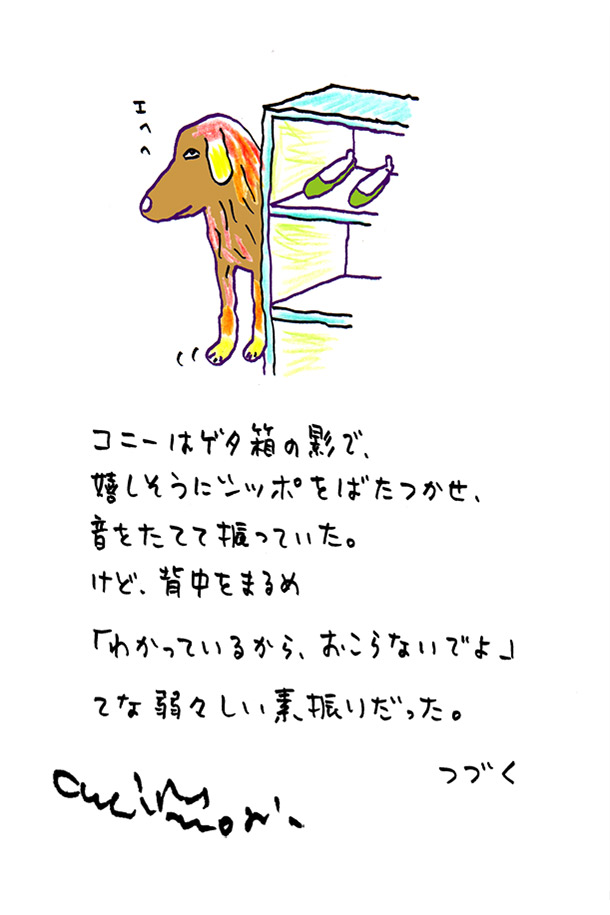 エヘヘ
コニーはゲタ箱の影で、
嬉しそうにシッポをばたつかせ、
音をたてて振っていた。
けど、背中をまるめ
「わかっているから、おこらないでよ」
てな弱々しい素振りだった。
つづく